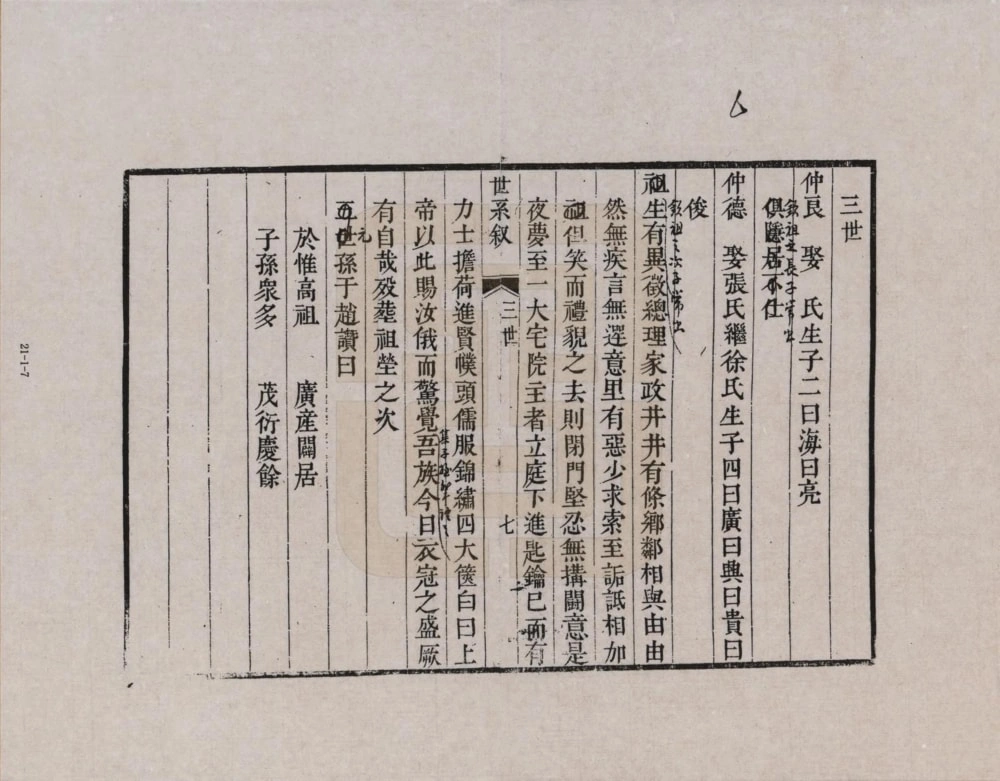 三世
仲良 娶 氏生子二曰海曰亮
俱隱居不仕
仲德 娶張氏繼徐氏生子四曰廣曰興曰貴曰
俊
祖生有異徵總理家政井井有條鄉鄰相與由由
然無疾言無遲意里有惡少求索至詬詆相加
祖但笑而禮貌之去則閉門堅忍無搆鬪意是
夜夢至一大宅院主者立庭下進匙鑰已而有
世系叙 三世 七
力士擔荷進賢幞頭儒服錦繡四大篋白曰上
帝以此賜汝俄而驚覺吾族今日衣冠之盛厥
有自哉歿葬祖塋之次
五世孫于趙讚曰
於惟高祖 廣産闢居
子孫衆多 茂衍慶餘
21-1-7